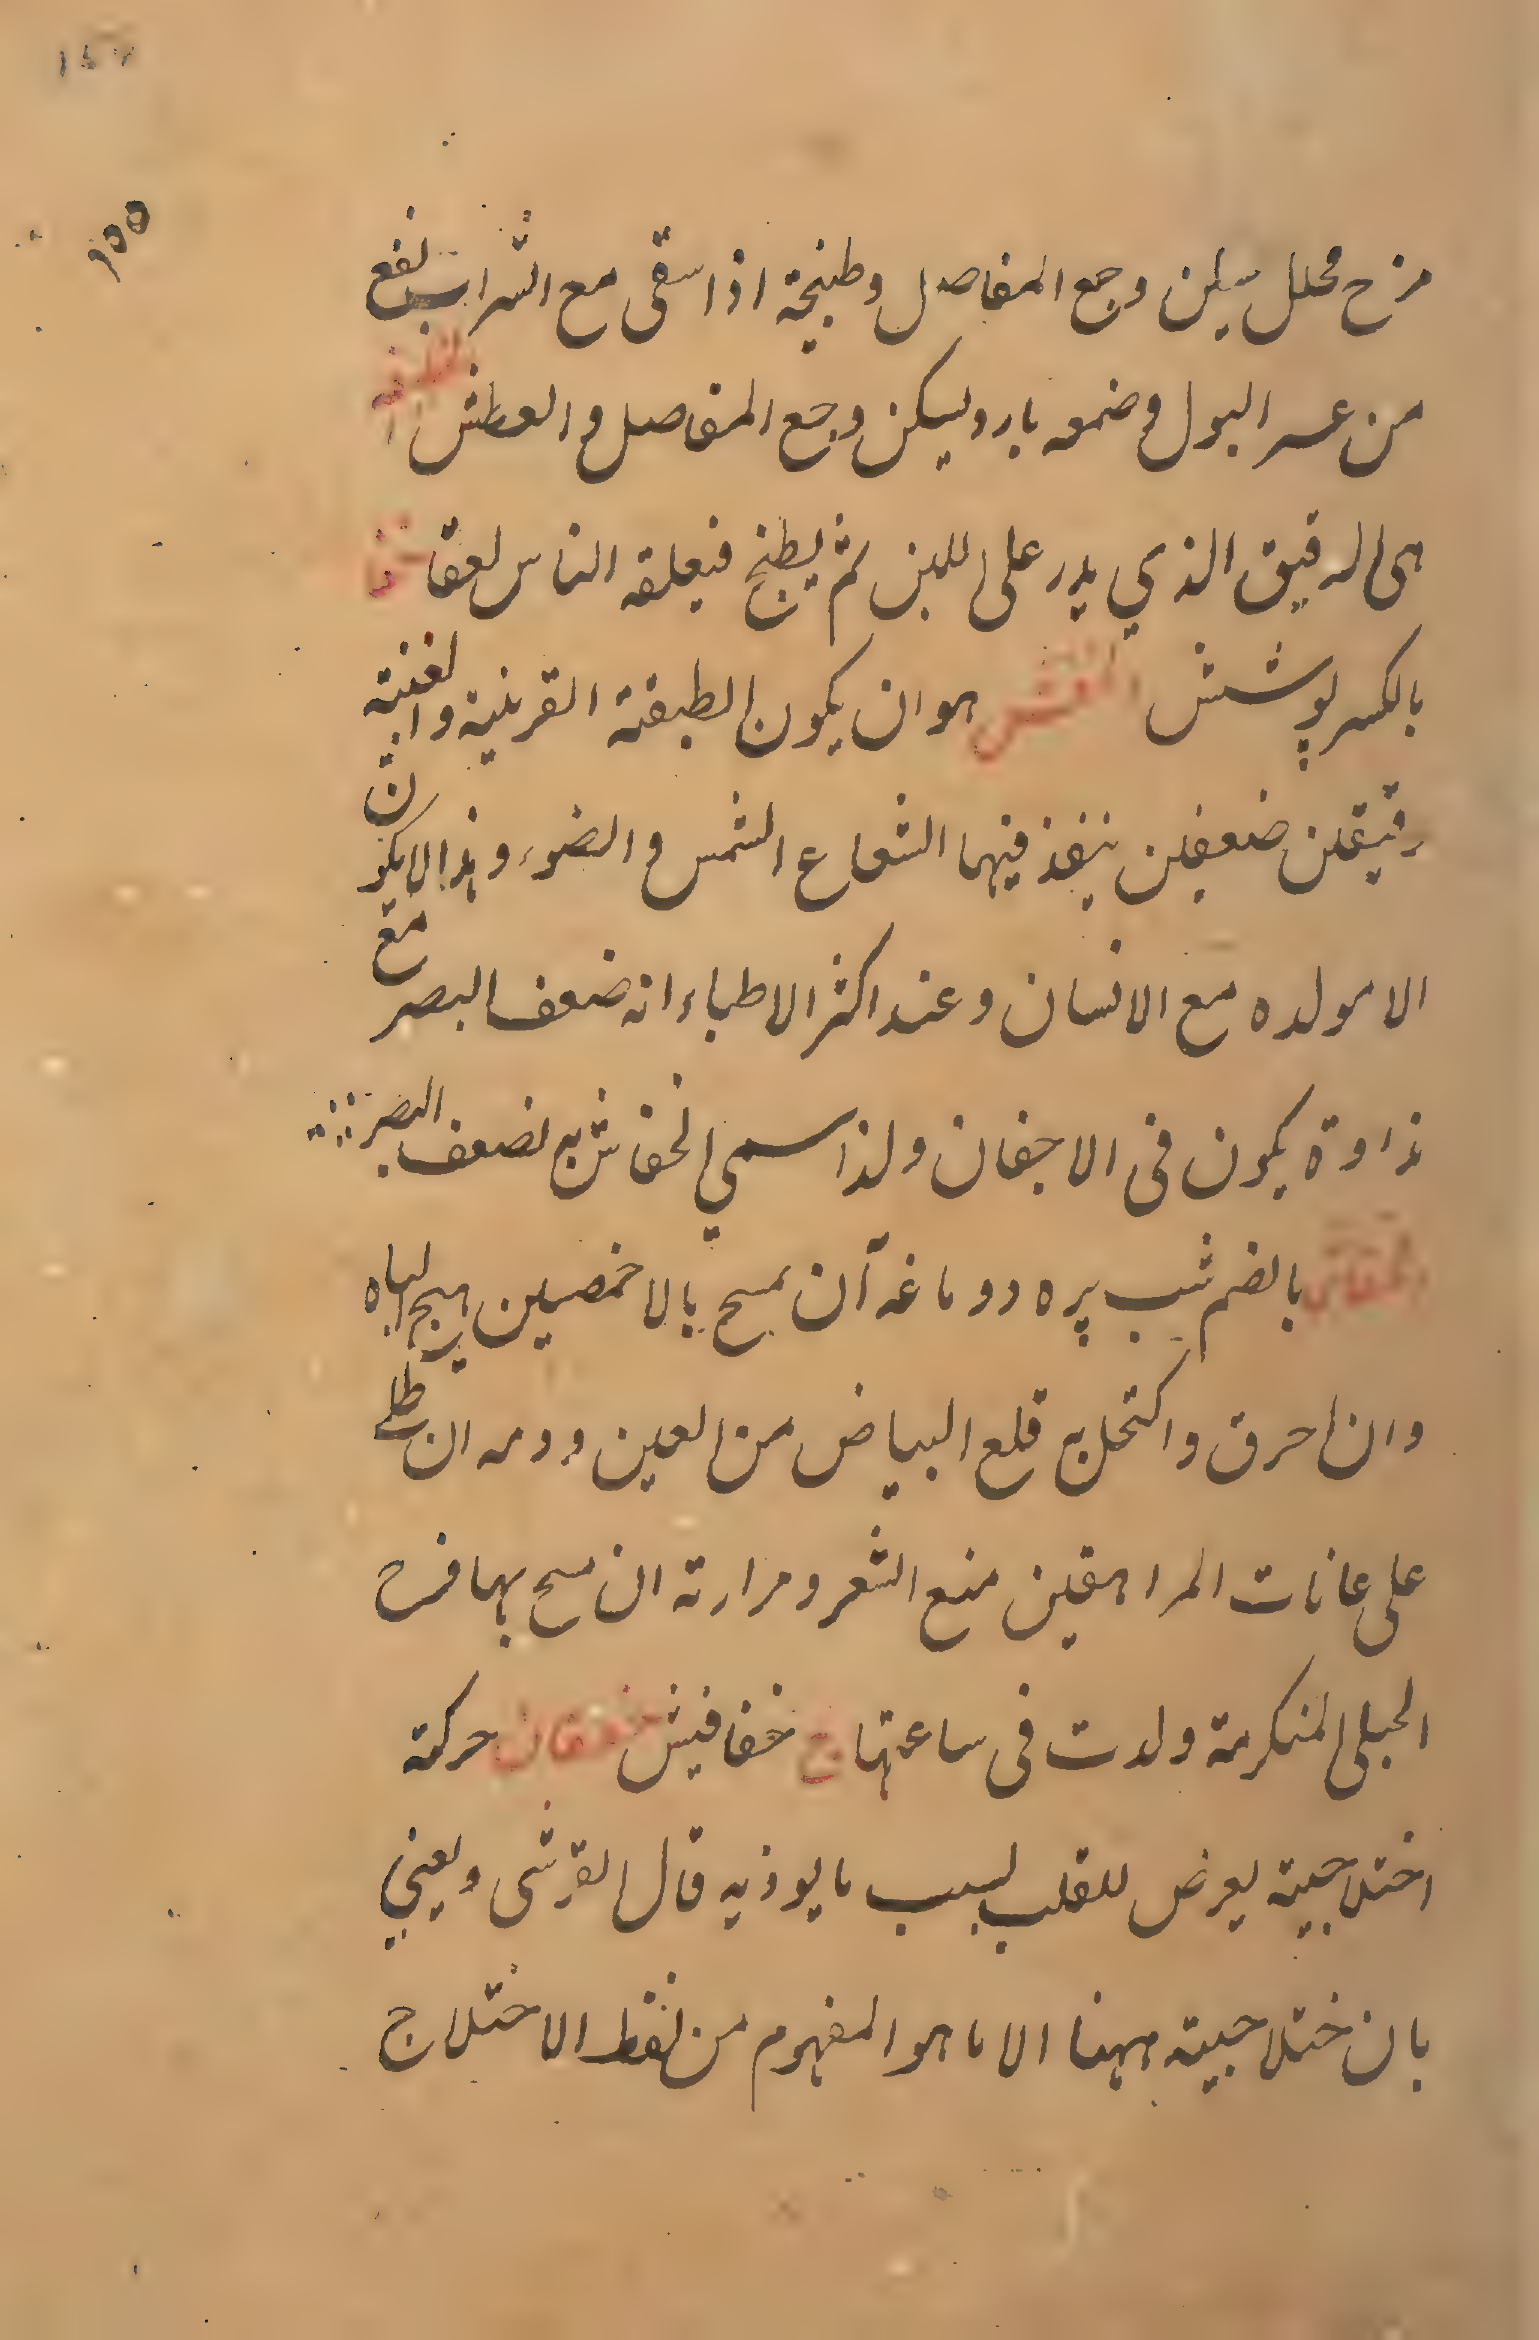 ١٥٥
مزح محلل يلين وجع المفاصل وطبيخه اذا سقى مع الشراب نفع
من عسر البول وضمعه بارد ليكن وجع المفاصل والعطش
هى الدقيق الذي يدر على اللبن ثم يطبخ فيعلقه الناس لعقا
بالكسر پوشش الخفش هو ان يكون الطبقة القرنية والغنبية
رقيقين ضعيفين ينفذ فيهما الشعاع الشمس والضوء وهذا لا يكون
الا مولده مع الانسان وعند اكثر الاطباء انه ضعف البصر مع
نداوة يكون فى الاجفان ولذا سمي الخفاش به لضعف البصر
الخفاش بالضم شب پره ودماغه آن يمسح بالاخمصين يهيج الباه
وان احرق واكتحل به قلع البياض من العين ودمه ان طلے
على عانات المراهقين منع الشعر ومرارته ان مسح بها فرج
الحبلى المنكرمة ولدت فى ساعتها ج خفافيش خفقان حركة
اختلاجية يعرض للقلب لسبب ما يوذيه قال القرشى ويعني
بان ختلاجية ههنا الا ما هو المفهوم من لفظ الاختلاج